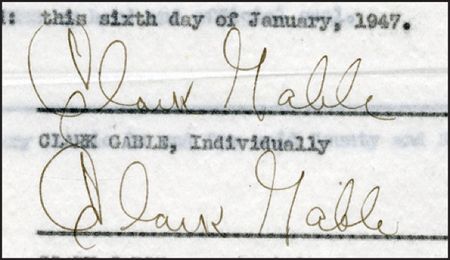 : this sixth day of January, 1947.
Clark Gable
CLARK GABLE, Individually
Clark Gable